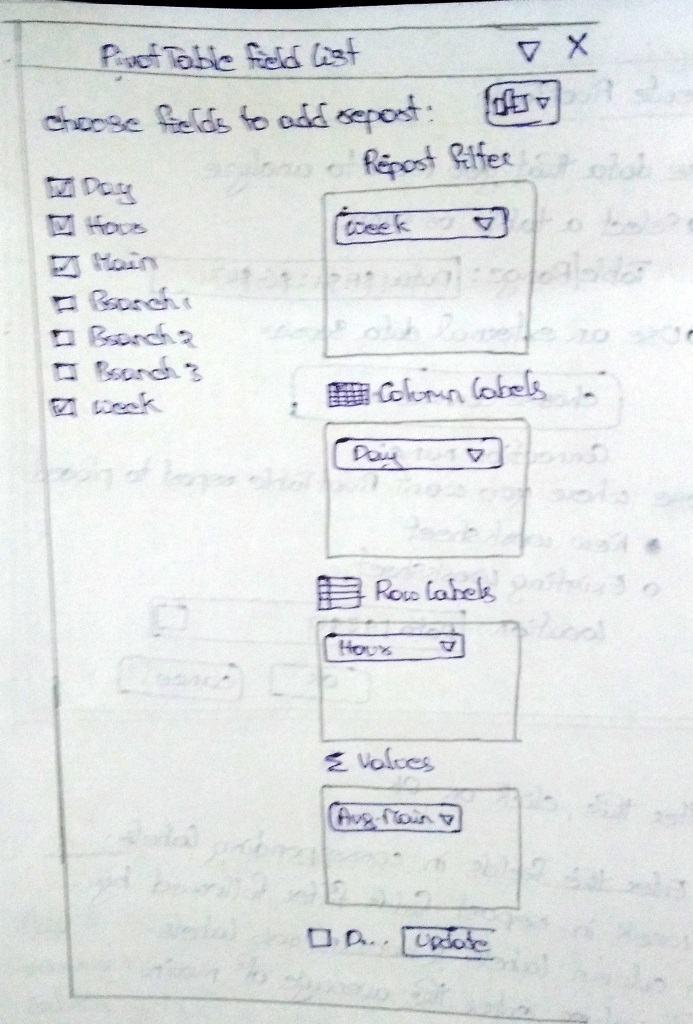 PivotTable field list X
choose fields to add report:
Report filter
Day
Hour
Main
Branch 1
Branch 2
Branch 3
week
week
Column labels
Day
Row labels
Hour
Σ Values
Avg. Main
D... Update